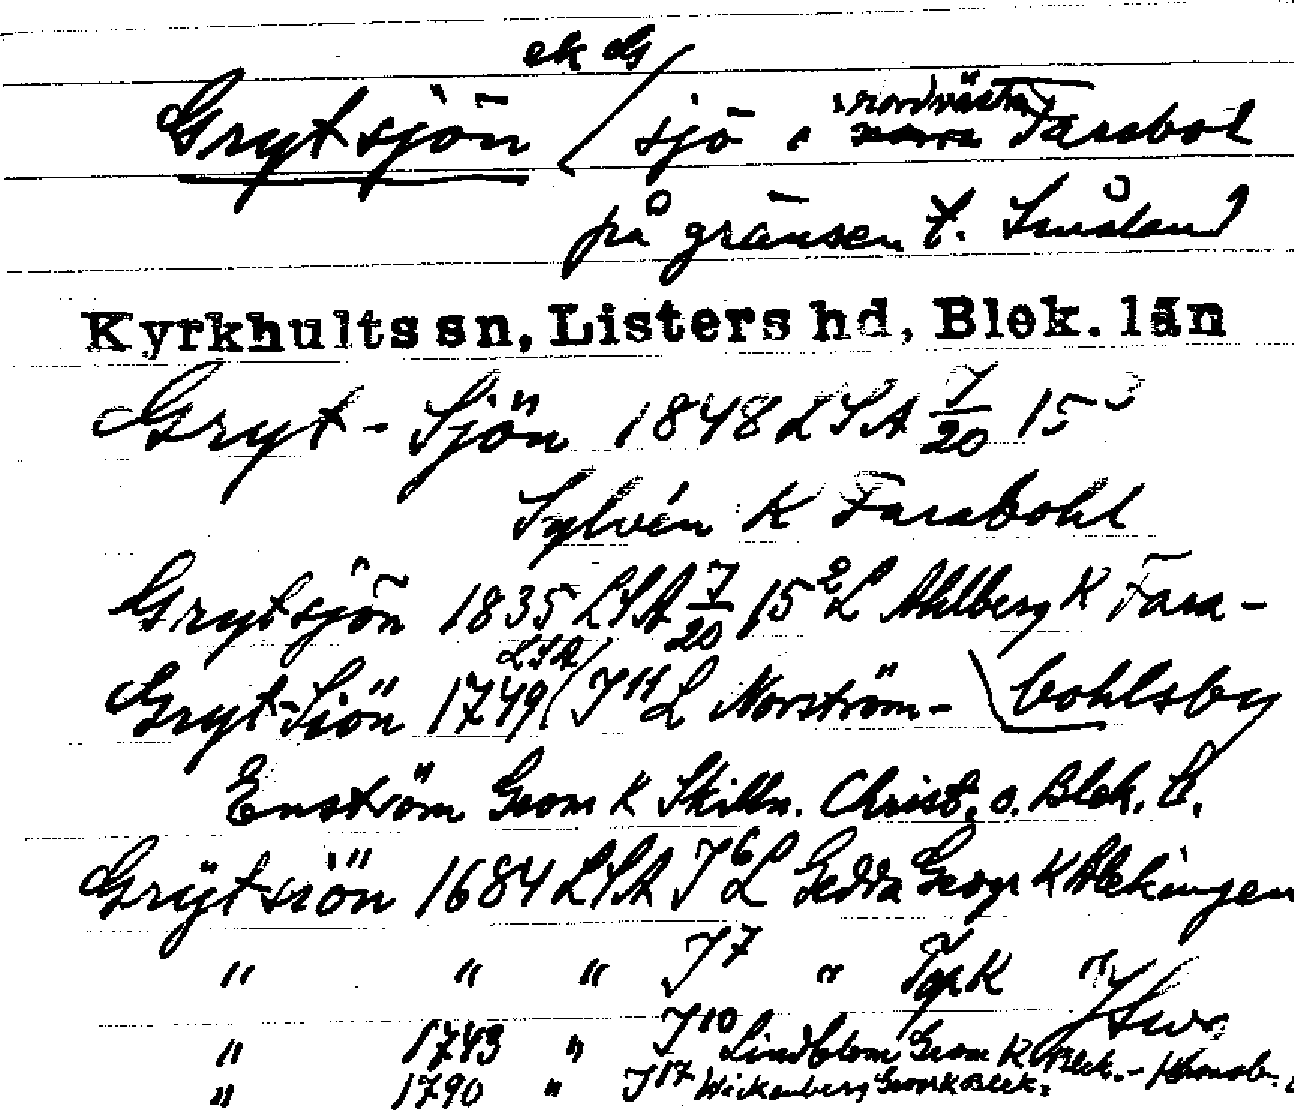 ek G
Grytsjön / sjö i nordvästra Farabol
på gränsen t. Småland
Kyrkhults sn, Listers hd, Blek. län
Gryt-Sjön 1848 LSA 7/20 15³
Sylvén K Farabohl
Grytsjön 1835 LSA 7/20 15² L Ahlberg K Fara-
bohlsby
Gryt-Siön 1749 (LSA J11 L Norström-
Enström Geom K Skilln. Christ. o. Blek. l.
Grÿtsiön 1684 LSA J6 L Gedda Geogr K Blekingen
" " " J7 " Top K "
" 1743 " J10 Lindblom Geom K Blek.-
" 1790 " J17 Wickenberg Geom K Blek.